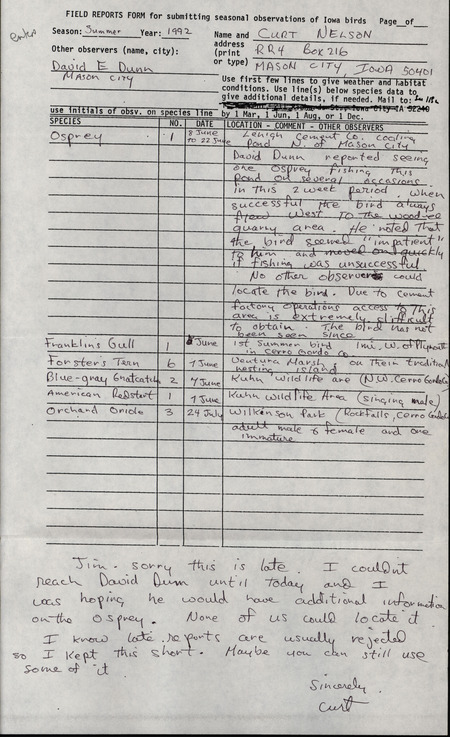 FIELD REPORTS FORM for submitting seasonal observations of Iowa birds Page__of__
Season: Summer Year: 1992 Name and CURT NELSON
Other observers (name, city): address RR4 Box 216
David E Dunn (print or type) MASON CITY, IOWA 50401
MASON CITY
Use first few lines to give weather and habitat
conditions. Use line(s) below species data to
give additional details, if needed. Mail to:
use initials of obsv. on species line by 1 Mar, 1 Jun, 1 Aug, or 1 Dec.
SPECIES NO. DATE LOCATION - COMMENT - OTHER OBSERVERS
Osprey 1 8 June to 22 June Lehigh Cement Co. cooling
Pond N. of Mason City
David Dunn reported seeing
one Osprey fishing this
pond on several occasions
in this 2 week period. When
successful the bird always
flew West to the wooded
quarry area. He noted that
the bird seemed "impatient"
to him and moved on quickly
if fishing was unsuccessful
No other observers could
locate the bird. Due to cement
factory operations access to this
area is extremely difficult
to obtain. The bird has not
been seen since.
Franklin's Gull 1 June 1st Summer bird 1mi. W. of Plymouth
in Cerro Gordo Co
Forster's Tern 6 7 June Ventura Marsh on their traditional
nesting island
Blue-gray Gnatcatch 2 7 June Kuhn Wildlife are (N.W. Cerro Gordo Co
American Redstart 1 7 June Kuhn Wildlife Area (singing male)
Orchard Oriole 3 24 July Wilkinson Park (Rockfalls, Cerro Gordo Co
adult male & female and one
immature
Jim - sorry this is late. I couldn't
reach David Dunn until today and I
was hoping he would have additional information
on the Osprey. None of us could locate it
I know late reports are usually rejected
so I kept this short. Maybe you can still use
some of it
Sincerely,
Curt